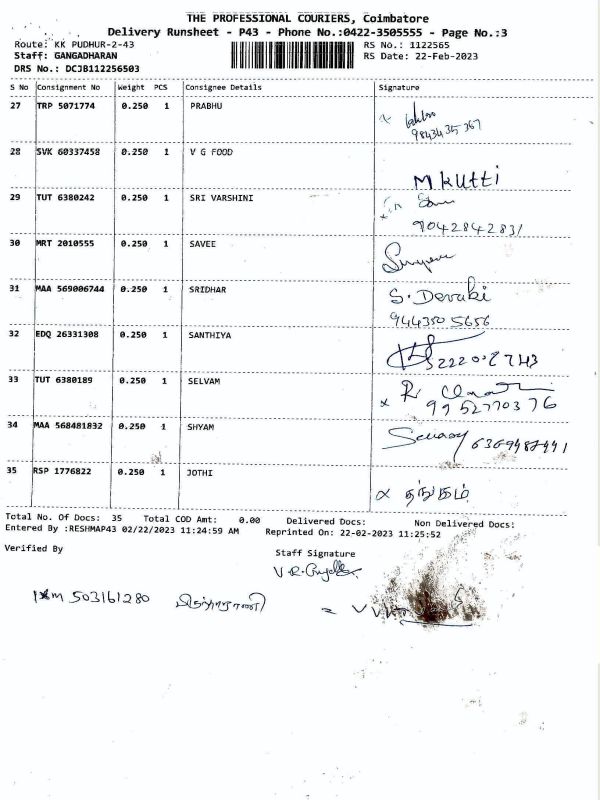 THE PROFESSIONAL COURIERS, Coimbatore
Delivery Runsheet - P43 - Phone No.:0422-3505555 - Page No.:3
Route: KK PUDHUR-2-43 RS No.: 1122565
Staff: GANGADHARAN RS Date: 22-Feb-2023
DRS No.: DCJB112256503
S No Consignment No Weight PCS Consignee Details Signature
27 TRP 5071774 0.250 1 PRABHU
9843435367
28 SVK 60337458 0.250 1 V G FOOD
M Kutti
29 TUT 6380242 0.250 1 SRI VARSHINI
9042842831
30 MRT 2010555 0.250 1 SAVEE
31 MAA 569006744 0.250 1 SRIDHAR S. Devaki
9443505656
32 EDQ 26331308 0.250 1 SANTHIYA
33 TUT 6380189 0.250 1 SELVAM
9952770376
34 MAA 568481832 0.250 1 SHYAM
35 RSP 1776822 0.250 1 JOTHI
தங்கம்
Total No. Of Docs: 35 Total COD Amt: 0.00 Delivered Docs: Non Delivered Docs:
Entered By :RESHMAP43 02/22/2023 11:24:59 AM Reprinted On: 22-02-2023 11:25:52
Verified By Staff Signature
503161280